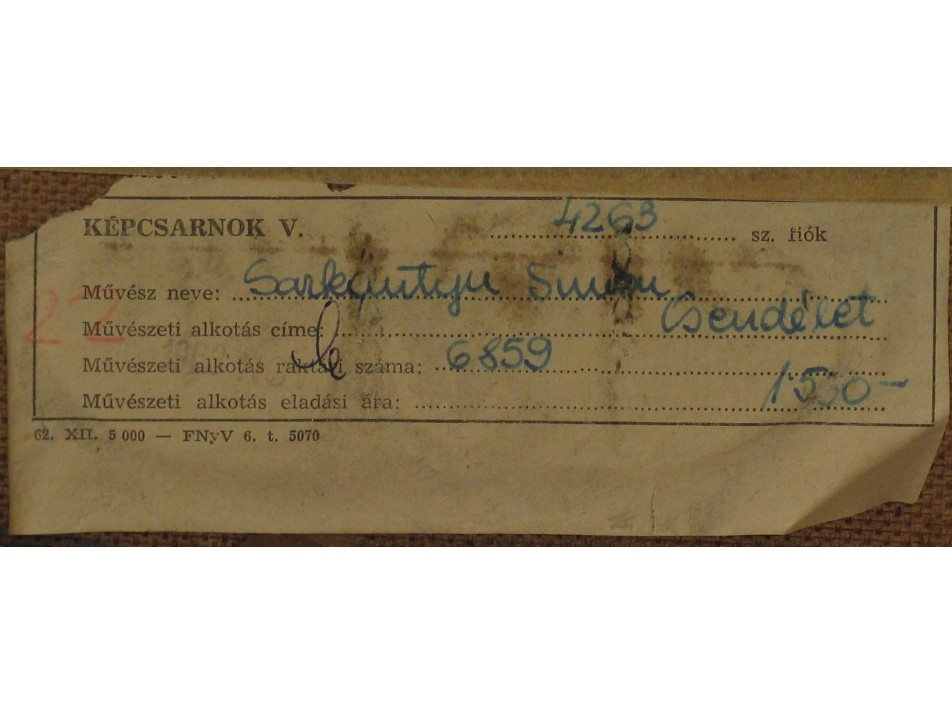 KÉPCSARNOK V. 4263 sz. fiók
Művész neve: Sarkantyu Simon
Művészeti alkotás címe: Csendélet
Művészeti alkotás raktári száma: 6859
Művészeti alkotás eladási ára: 1550-
62. XII. 5 000 — FNyV 6. t. 5070
22